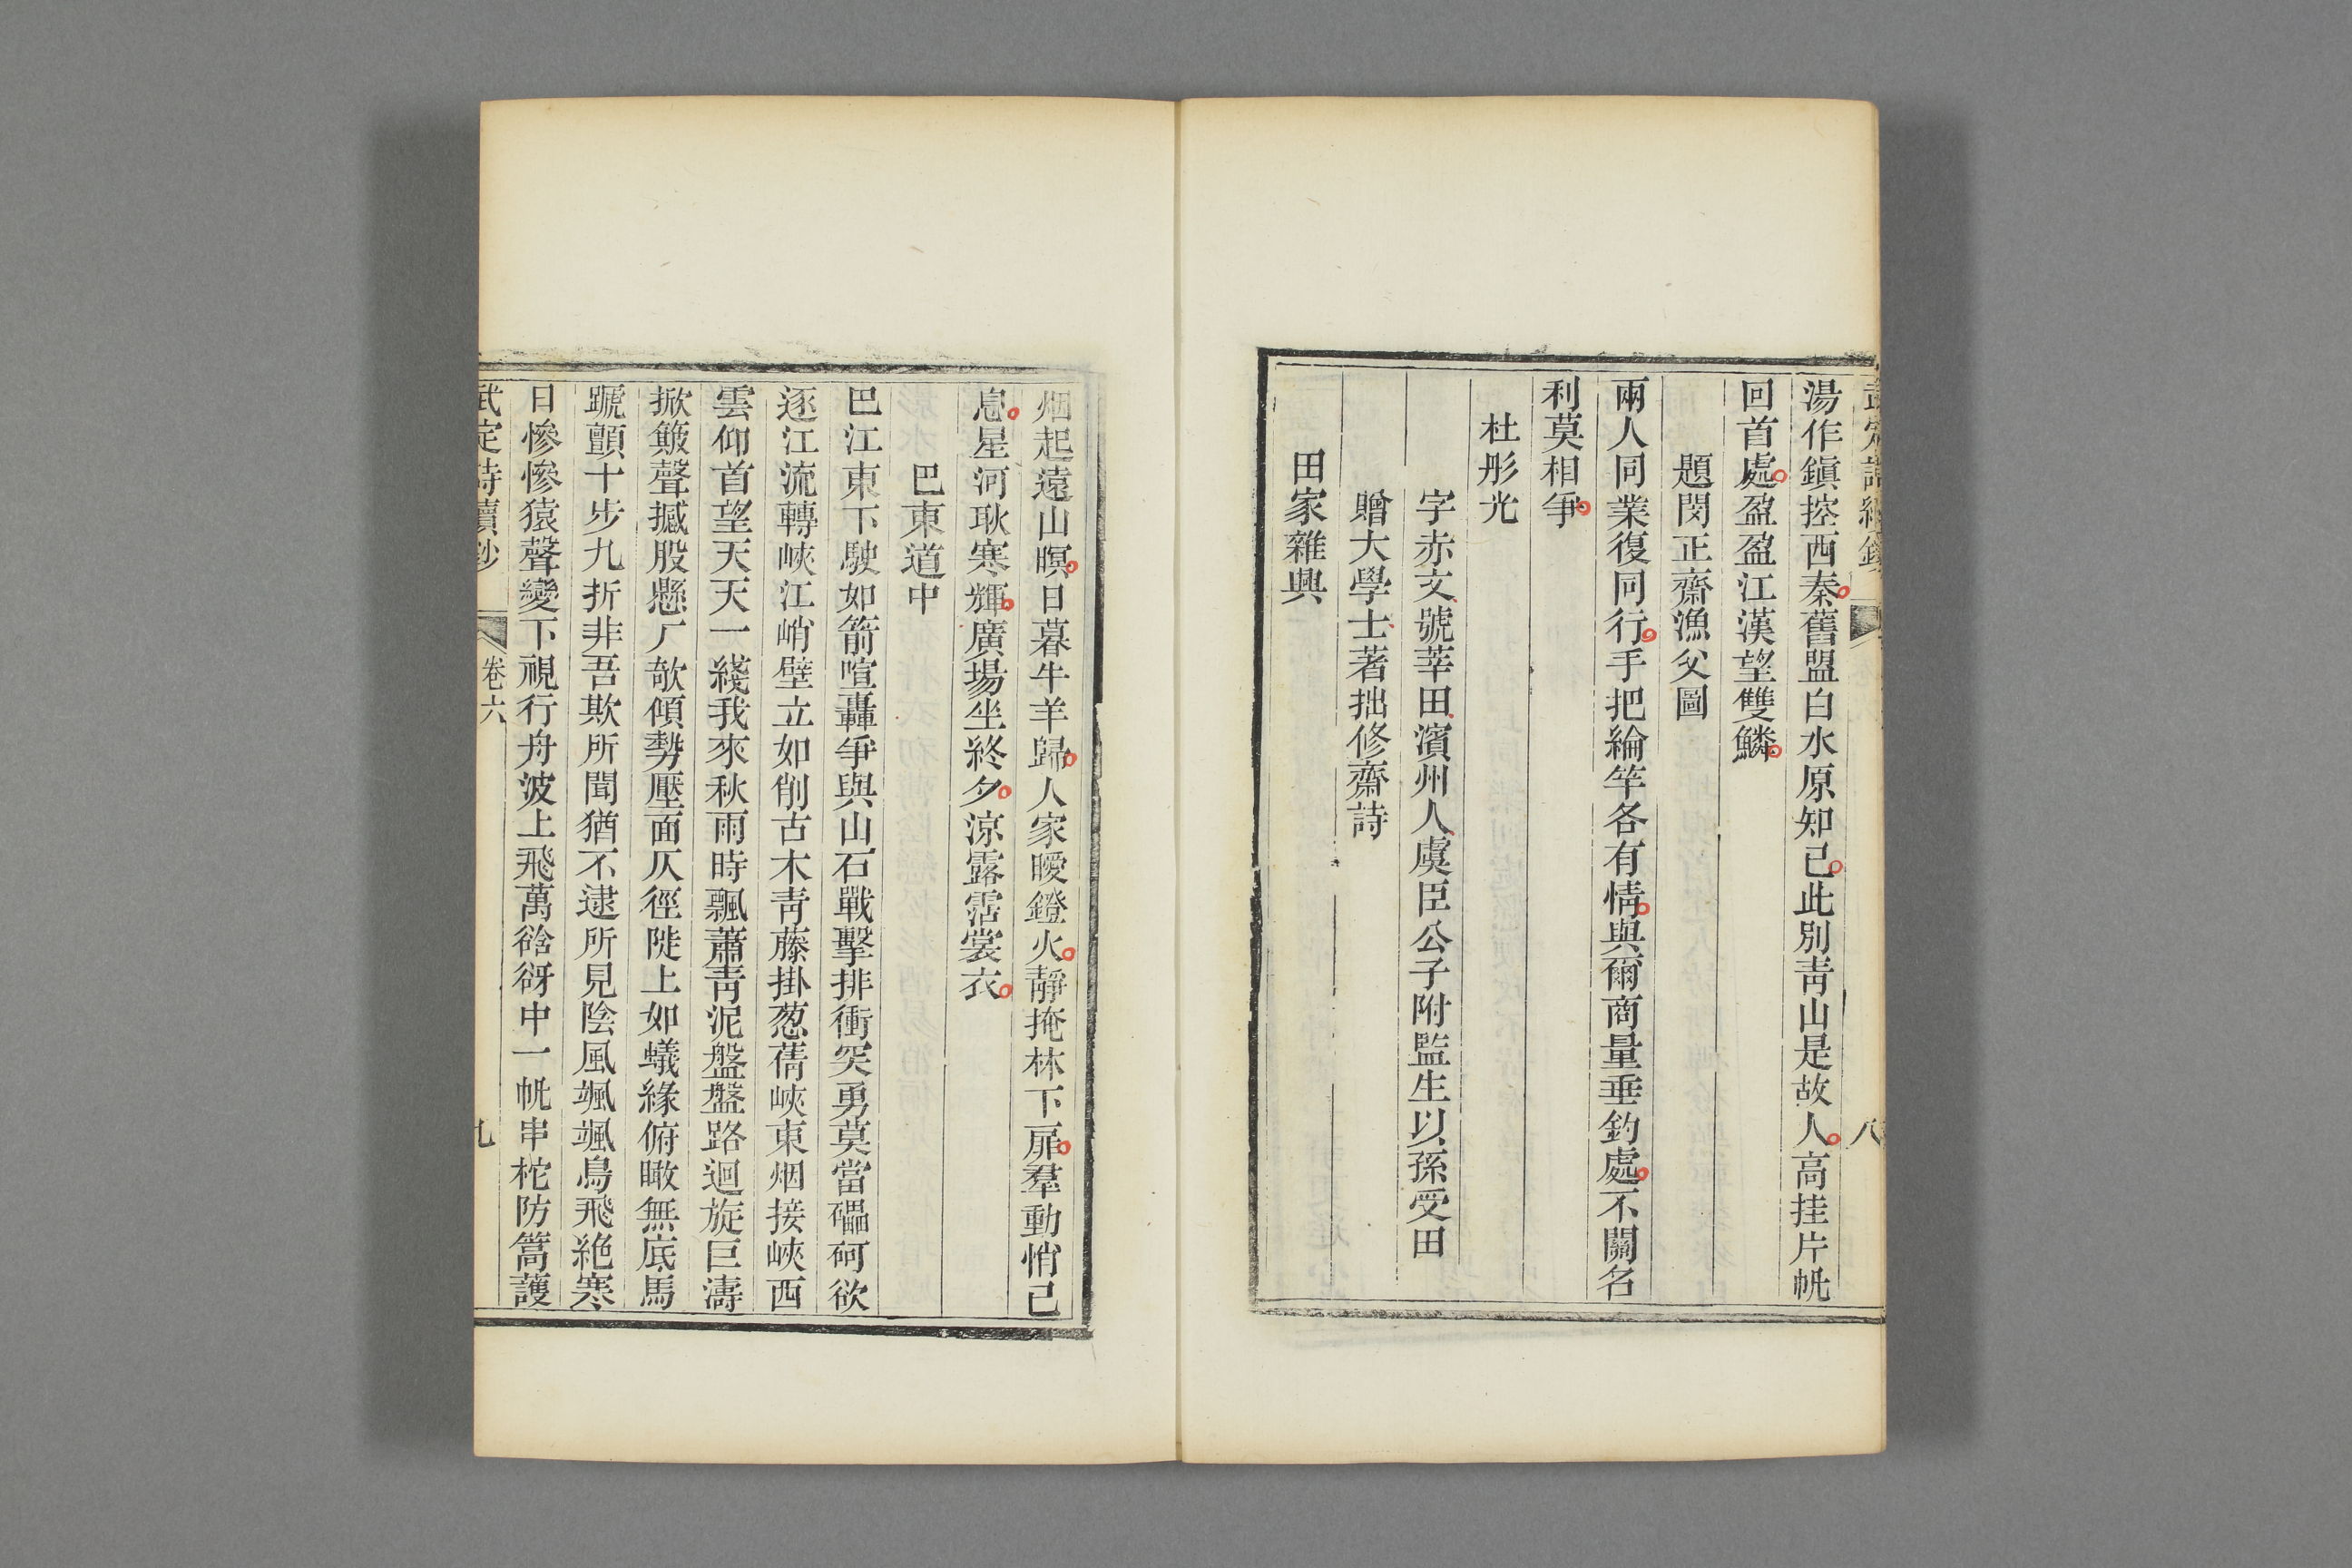 湯作鎭控西秦舊盟白水原知已此別靑山是故人高挂片帆
回首處盈盈江漢望雙鱗
題閔正齋漁父圖
兩人同業復同行手把綸竿各有情與爾商量垂釣處不關名
利莫相爭
杜彤光
字赤文號莘田濱州人虞臣公子附監生以孫受田
贈大學士著拙修齋詩
田家雜興
烟起遠山暝日暮牛羊歸人家曖鐙火靜掩林下扉羣動悄已
息星河耿寒輝廣場坐終夕涼露霑裳衣
巴東道中
巴江東下駛如箭喧轟爭與山石戰擊排衝突勇莫當礧砢欲
逐江流轉峽江峭壁立如削古木靑藤掛葱蒨峽東烟接峽西
雲仰首望天天一綫我來秋雨時飄蕭靑泥盤盤路迴旋巨濤
掀簸聲撼股懸厂欹傾勢壓面仄徑陡上如蟻緣俯瞰無底馬
蹏顫十步九折非吾欺所聞猶不逮所見陰風颯颯鳥飛絕寒
日慘慘猿聲變下視行舟波上飛萬谽谺中一帆串柁防篙護
武定詩續鈔
卷六
九
八